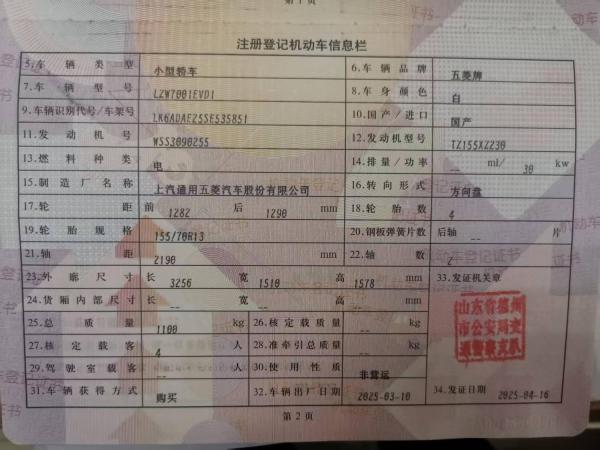 第 1 页
注册登记机动车信息栏
5.车辆类型 小型轿车 6.车辆品牌 五菱牌
7.车辆型号 LZW7001EVD1 8.车身颜色 白
9.车辆识别代号/车架号 LK6ADAEZ5SE535851 10.国产/进口 国产
11.发动机号 WSS3090255 12.发动机型号 TZ155XZ230
13.燃料种类 电 14.排量/功率 -- ml/ 30 kw
15.制造厂名称 上汽通用五菱汽车股份有限公司 16.转向形式 方向盘
17.轮距 前 1282 后 1290 mm 18.轮胎数 4
19.轮胎规格 155/70R13 20.钢板弹簧片数 后轴 -- 片
21.轴距 2190 mm 22.轴数 2
23.外廓尺寸 长 3256 宽 1510 高 1578 mm 33.发证机关章
24.货厢内部尺寸 长 -- 宽 -- 高 -- mm
25.总质量 1100 kg 26.核定载质量 -- kg
27.核定载客 4 人 28.准牵引总质量 -- kg
29.驾驶室载客 -- 人 30.使用性质 非营运
31.车辆获得方式 购买 32.车辆出厂日期 2025-03-10 34.发证日期 2025-04-16
山东省德州
市公安局交
通警察支队
第 2 页